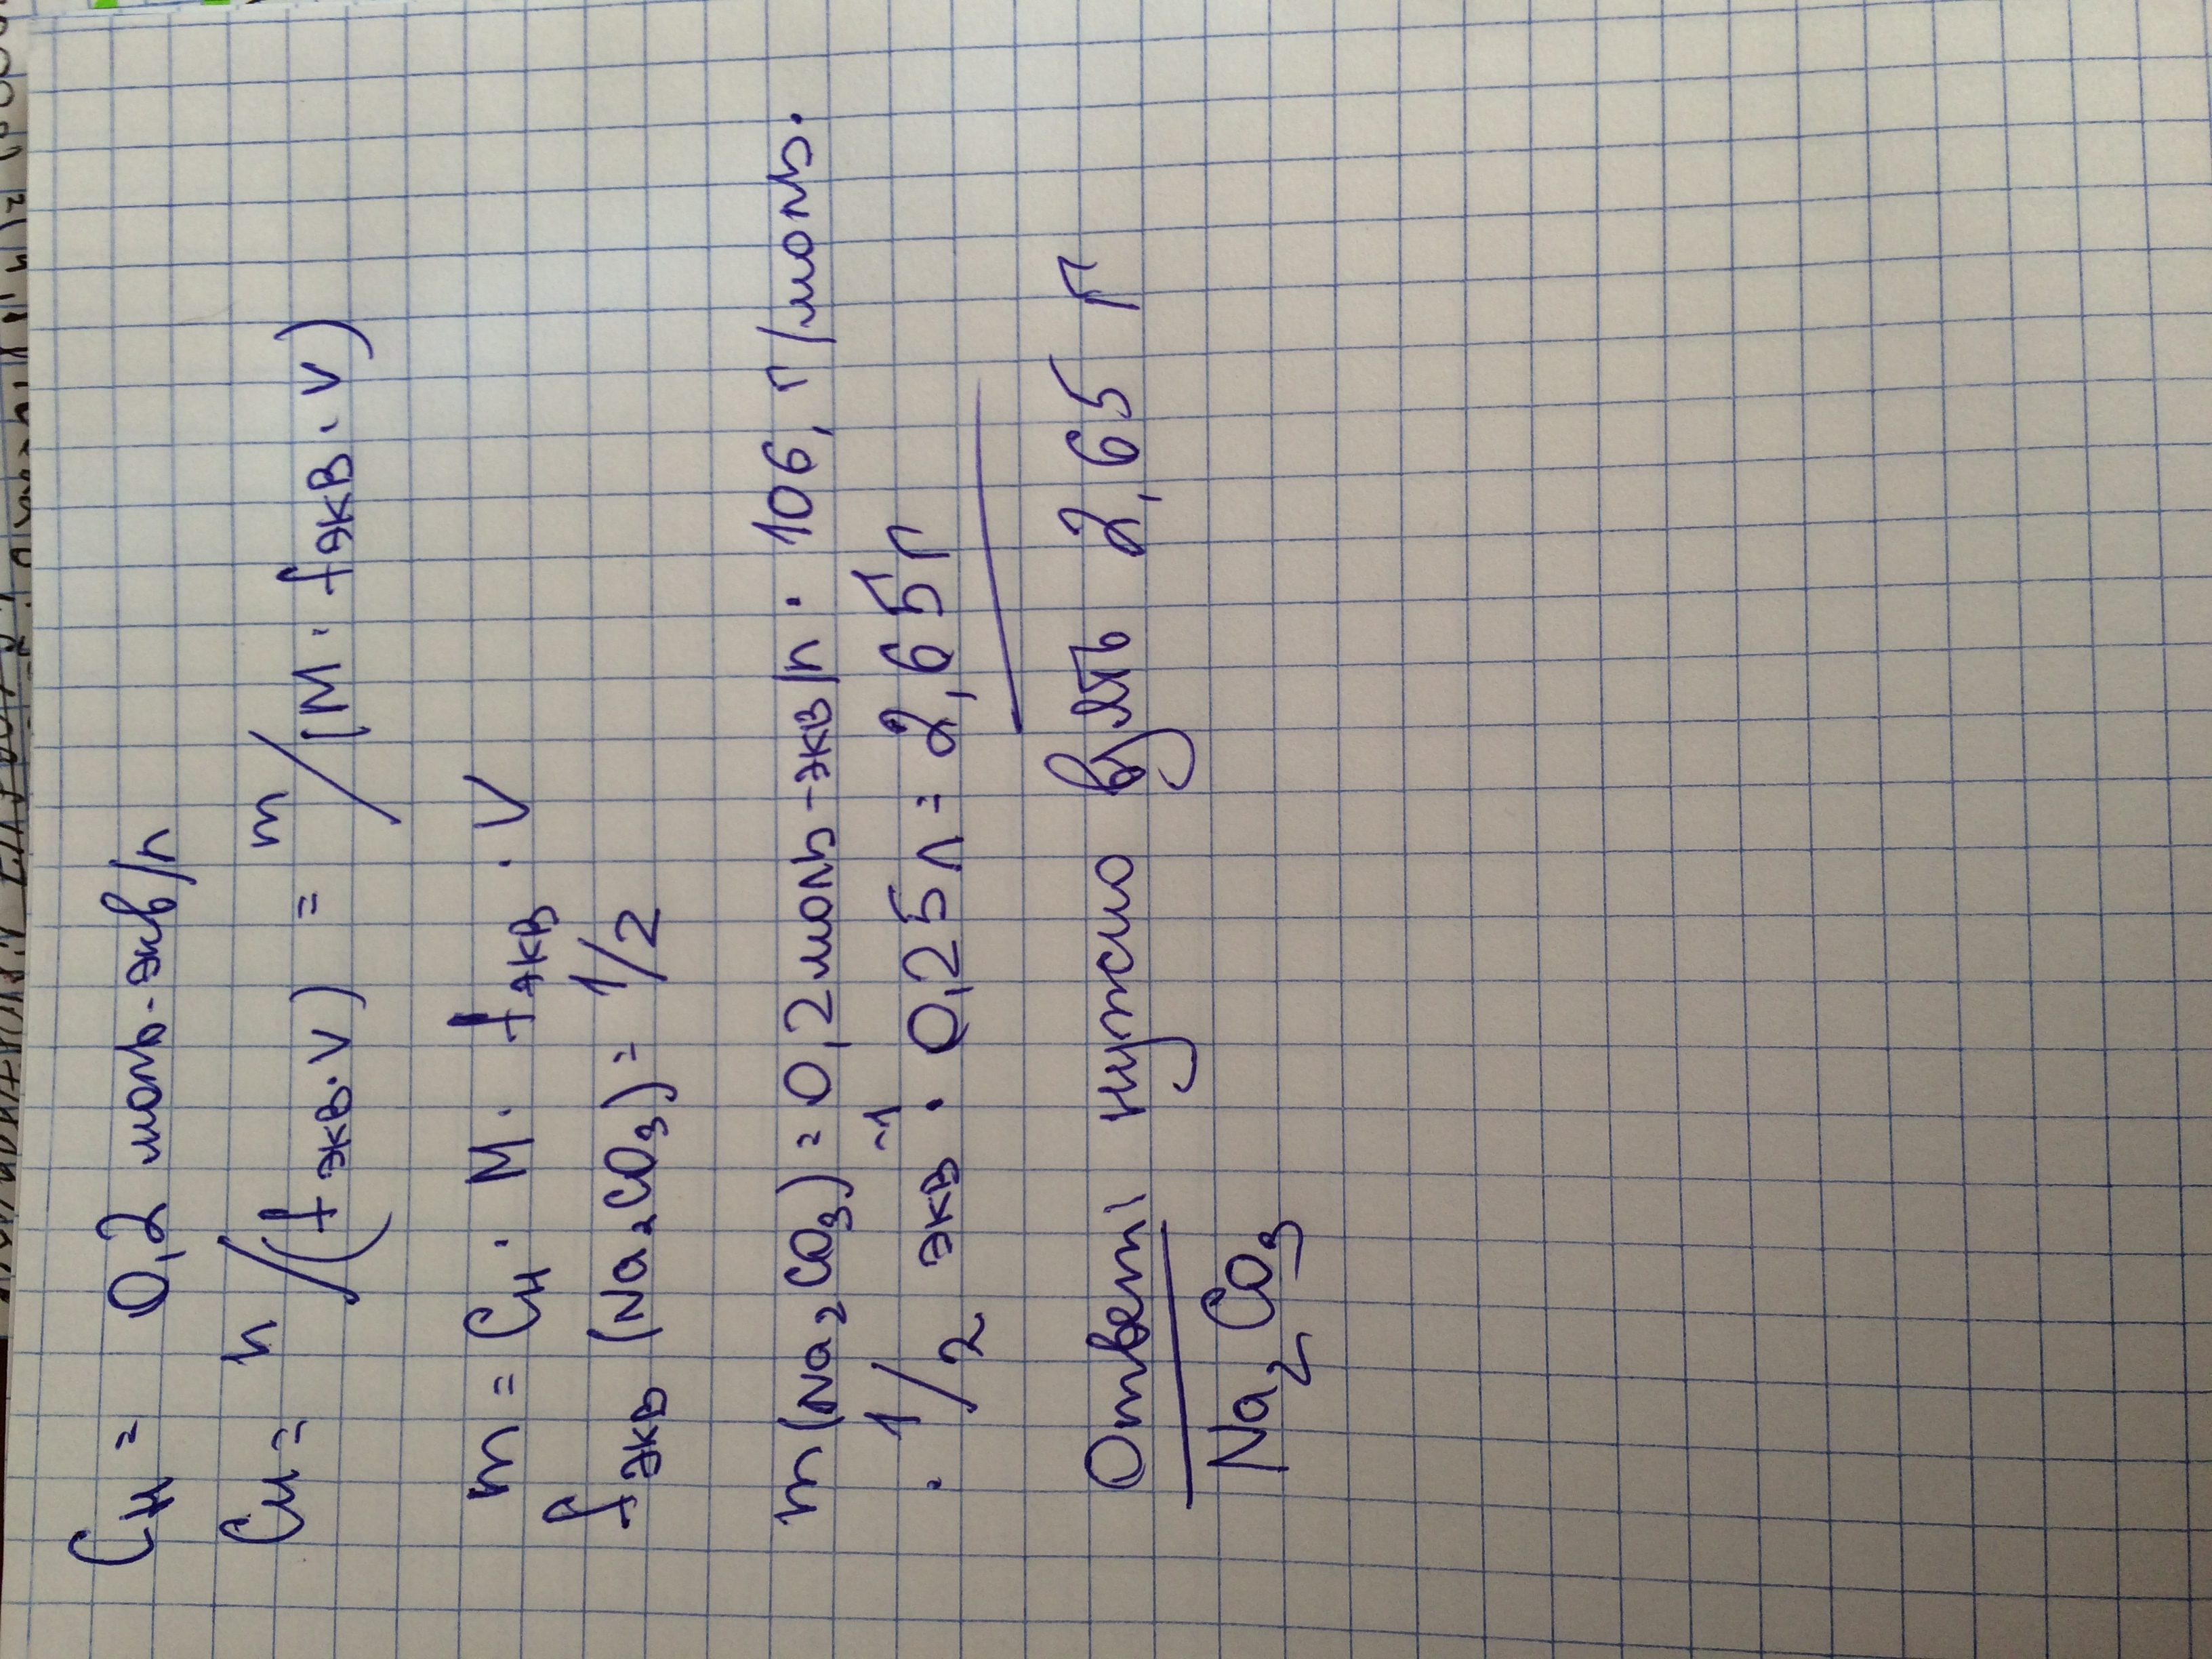 Cн = 0,2 моль-экв/л
Cн = n/(fэкв·V) = m/(M·fэкв·V)
m = Cн · M · fэкв · V
fэкв (Na₂CO₃) = 1/2
m(Na₂CO₃) = 0,2 моль-экв/л · 106, г/моль·
· 1/2 экв⁻¹ · 0,25 л = 2,65 г
Ответ: нужно взять 2,65 г
Na₂CO₃